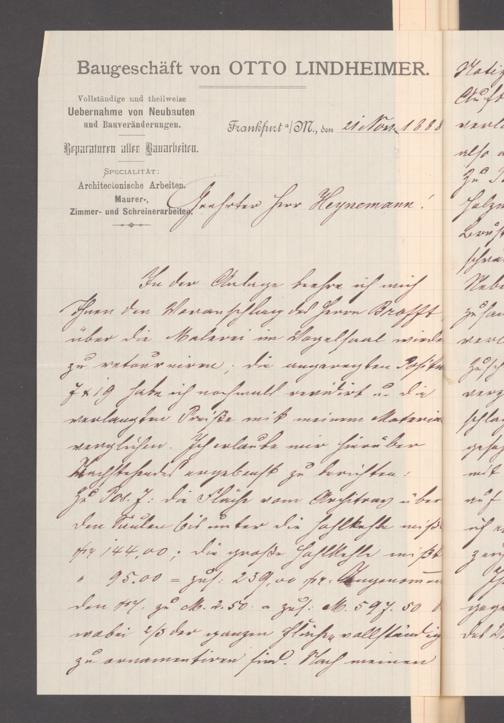 Baugeschäft von OTTO LINDHEIMER.
Vollständige und theilweise
Uebernahme von Neubauten
und Bauveränderungen.
Reparaturen aller Bauarbeiten.
SPECIALITÄT:
Architectonische Arbeiten.
Maurer-,
Zimmer- und Schreinerarbeiten.
Frankfurt a/M., den 21 Nov. 1888
Geehrter Herr Heynemann!
In der Anlage beehre ich mich
Ihnen den Voranschlag des Herrn
über die Malerei im Vogelsaal wieder
zu retourniren; die angeregten
7 & 19 habe ich nochmals revidirt u. die
verlangten Preiße mit meinem Material
verglichen. Ich erlaube mir hierüber
Nachstehendes ergebenst zu berichten:
Zu Pos. 7: die Fläche vom Architrav über
den Säulen bis unter die Hohlkehle mißt
144,00; die große Hohlkehle mißt
" 95.00 = zus: 239,00 Angenommen
den zu M. 2.50. = zus: M. 597.50
wobei 2/3 der ganzen Fläche vollständig
zu ornamentiren sind. Nach meinen